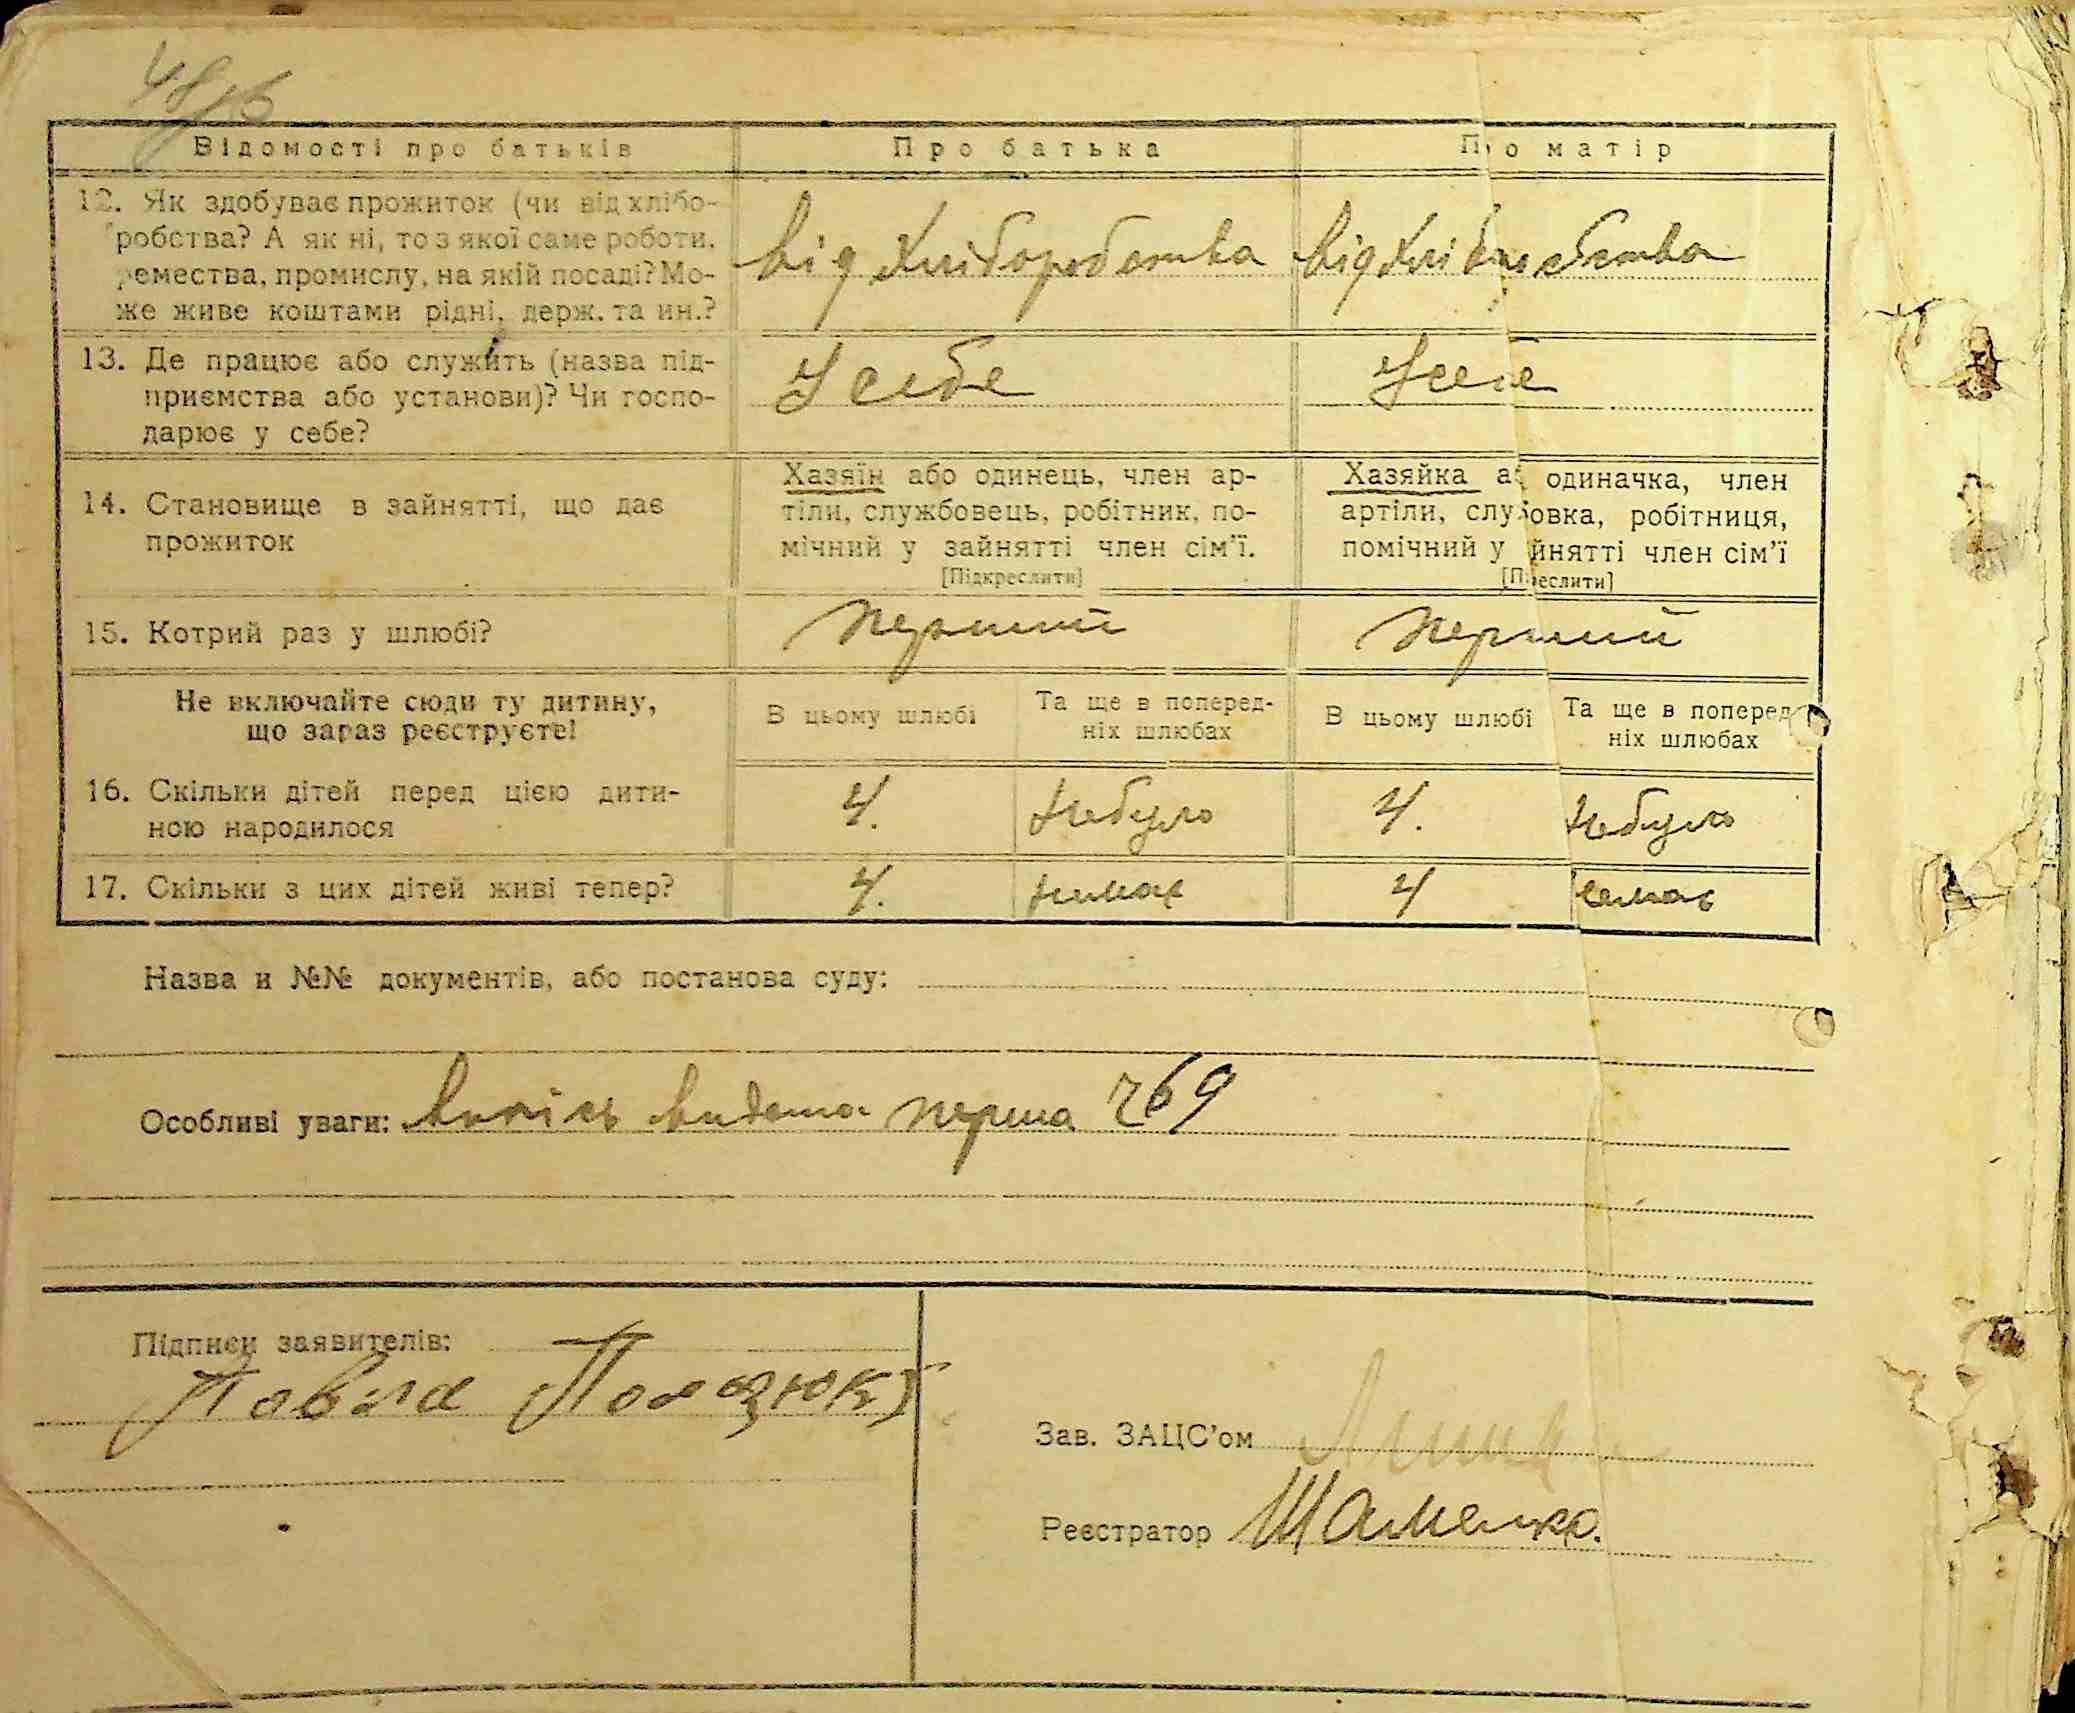 Відомості про батьків Про батька Про матір
12. Як здобуває прожиток (чи від хлібо-
робства? А як ні, то з якої саме роботи,
ремества, промислу, на якій посаді? Мо-
же живе коштами рідні, держ. та ин.?
від хліборобства від хліборобства
13. Де працює або служить (назва під-
приємства або установи)? Чи госпо-
дарює у себе?
У себе У себе
14. Становище в зайнятті, що дає
прожиток
Хазяїн або одинець, член ар-
тіли, службовець, робітник, по-
мічний у зайнятті член сім’ї.
[Підкреслити]
Хазяйка аб одиначка, член
артіли, службовка, робітниця,
помічний у йнятті член сім’ї
[П еслити]
15. Котрий раз у шлюбі? перший перший
Не включайте сюди ту дитину,
що зараз реєструєте!
В цьому шлюбі
Та ще в поперед-
ніх шлюбах
В цьому шлюбі
Та ще в поперед
ніх шлюбах
16. Скільки дітей перед цією дити-
ною народилося
4. небуло 4. небуло
17. Скільки з цих дітей живі тепер? 4. нимає 4 немає
Назва и №№ документів, або постанова суду:
Особливі уваги: випісь видана перша 769
Підписи заявителів:
Павла
Зав. ЗАЦС’ом
Реєстратор Шаменко.